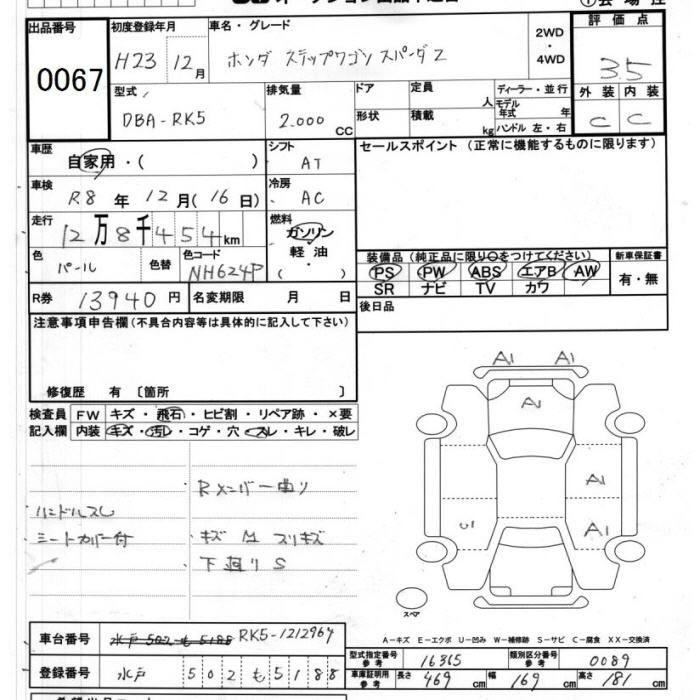 出品番号
0067
初度登録年月
H23 12月
車名・グレード
ホンダ ステップワゴン スパーダZ
2WD
・
4WD
評価点
3.5
外装 内装
C C
型式
DBA-RK5
排気量
2.000 CC
ドア
形状
定員 人
積載 kg
ディーラー・並行
モデル年式 年
ハンドル 左・右
車歴
自家用・( )
シフト
AT
セールスポイント (正常に機能するものに限ります)
車検
R8 年 12月(16日)
冷房
AC
走行
12万8千454km
燃料
ガソリン
・
軽油
・
( )
色
パール
色替
色コード
NH624P
装備品 (純正品に限り○をつけてください)
PS PW ABS エアB AW
SR ナビ TV カワ
新車保証書
有・無
R券 13940円
名変期限 月 日
後日品
注意事項申告欄 (不具合内容等は具体的に記入して下さい)
修復歴 有 〔箇所 〕
検査員
記入欄
FW キズ・飛石・ヒビ割・リペア跡・×要
内装 キズ・汚レ・コゲ・穴・スレ・キレ・破レ
ハンドルスレ
シートカバー付
Rメンバー曲り
キズ M スリキズ
下廻りS
A1 A1
A1
A1
A1
スペア
A-キズ E-エクボ U-凹み W-補修跡 S-サビ C-腐食 XX-交換済
車台番号
RK5-1212969
登録番号
水戸 502 も 5188
型式指定番号
参考
16365
類別区分番号
参考
0089
車庫証明用
参考
長さ 469 cm 幅 169 cm 高さ 181 cm